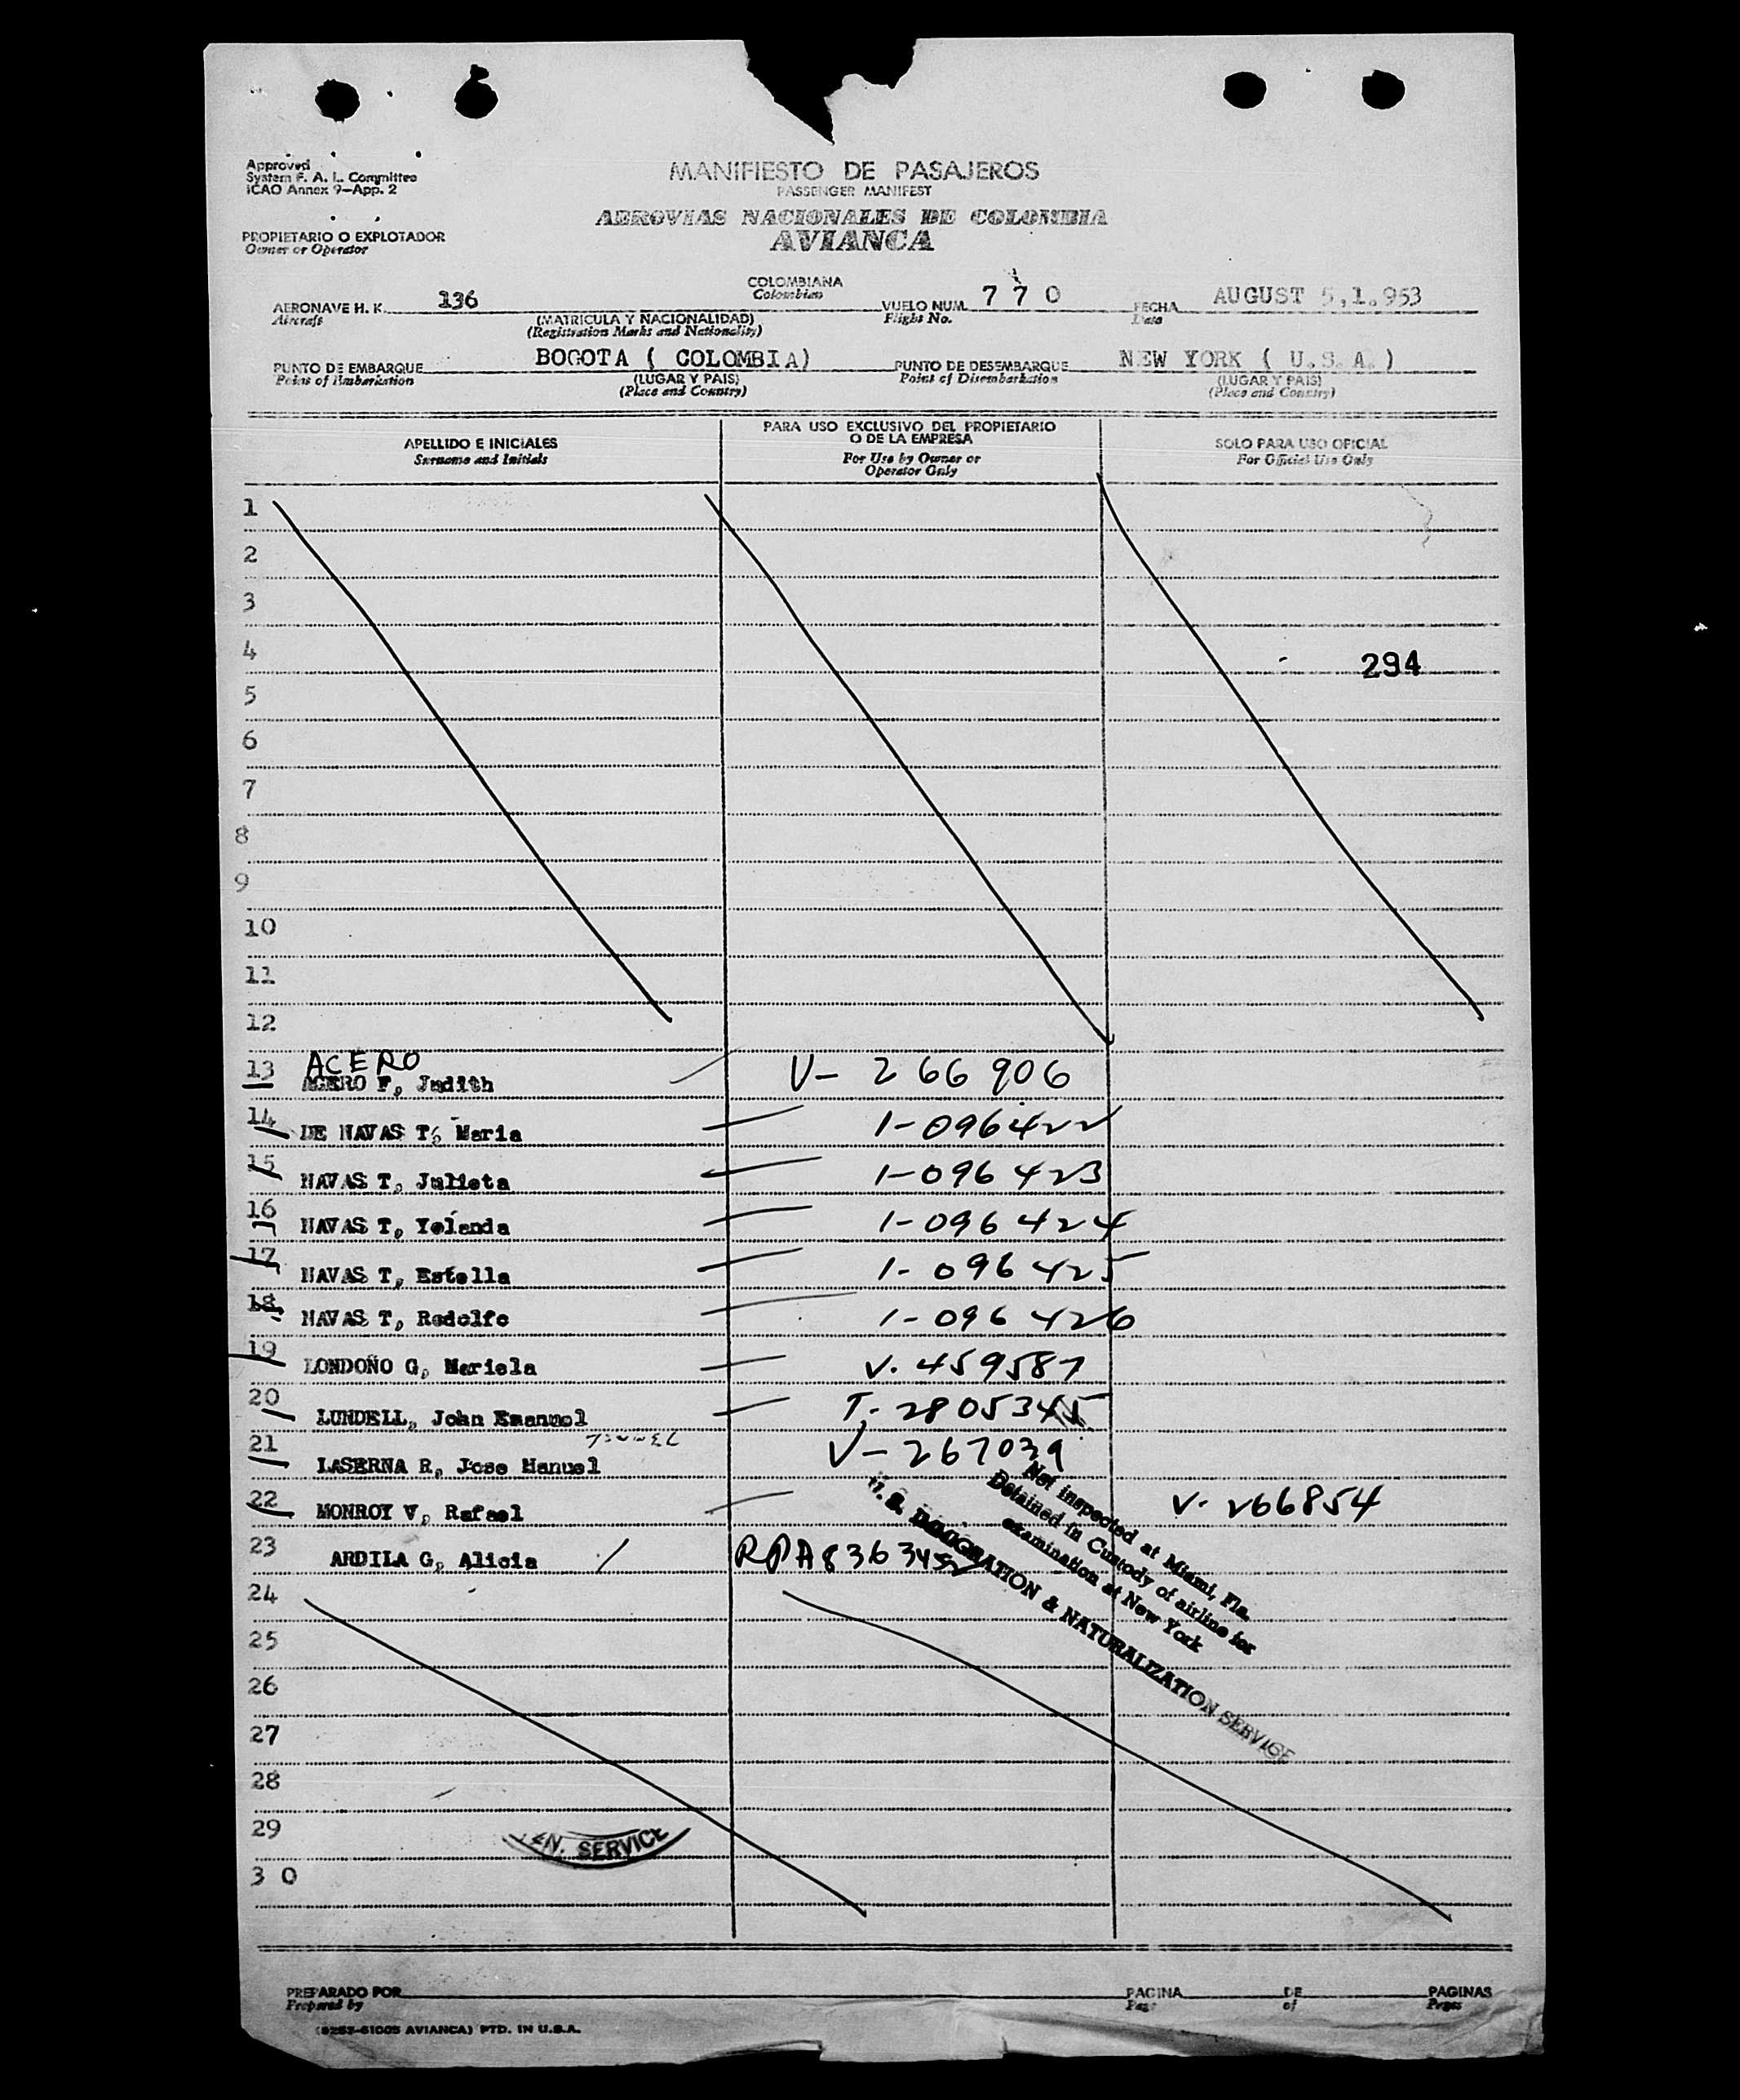 Approved
System F. A. L. Committee
ICAO Annex 9-App. 2
MANIFIESTO DE PASAJEROS
PASSENGER MANIFEST
AEROVIAS NACIONALES DE COLOMBIA
AVIANCA
PROPIETARIO O EXPLOTADOR
Owner or Operator
COLOMBIANA
Colombian
AERONAVE H. K. 136 VUELO NUM. 7 7 0 FECHA AUGUST 5,1.953
Aircraft (MATRICULA Y NACIONALIDAD) Flight No. Date
(Registration Marks and Nationality)
PUNTO DE EMBARQUE BOGOTA ( COLOMBIA) PUNTO DE DESEMBARQUE NEW YORK ( U.S.A.)
Point of Embarkation (LUGAR Y PAIS) Point of Disembarkation (LUGAR Y PAIS)
(Place and Country) (Place and Country)
APELLIDO E INICIALES
Surname and Initials
PARA USO EXCLUSIVO DEL PROPIETARIO
O DE LA EMPRESA
For Use by Owner or
Operator Only
SOLO PARA USO OFICIAL
For Official Use Only
1
2
3
4 294
5
6
7
8
9
10
11
12
ACERO
13 ACERO F, Judith V- 266906
14 DE NAVAS T, Maria 1-096422
15 NAVAS T, Julieta 1-096423
16 NAVAS T, Yolanda 1-096424
17 NAVAS T, Estella 1-096425
18 NAVAS T, Rodolfo 1-096426
19 LONDOÑO G, Mariela V. 459587
20 LUNDELL, John Emanuel T,- 2805345
21 LASERNA R, Jose Manuel V- 267039
22 MONROY V, Rafael V. 266854
23 ARDILA G, Alicia RPA836345
Not inspected at Miami, Fla.
Detained in Custody of airline for
examination at New York
U. S. IMMIGRATION & NATURALIZATION SERVICE
24
25
26
27
28
29
EN. SERVICE
3 0
PREPARADO POR PAGINA DE PAGINAS
Prepared by Page of Pages
(8253-61005 AVIANCA) PTD. IN U.S.A.